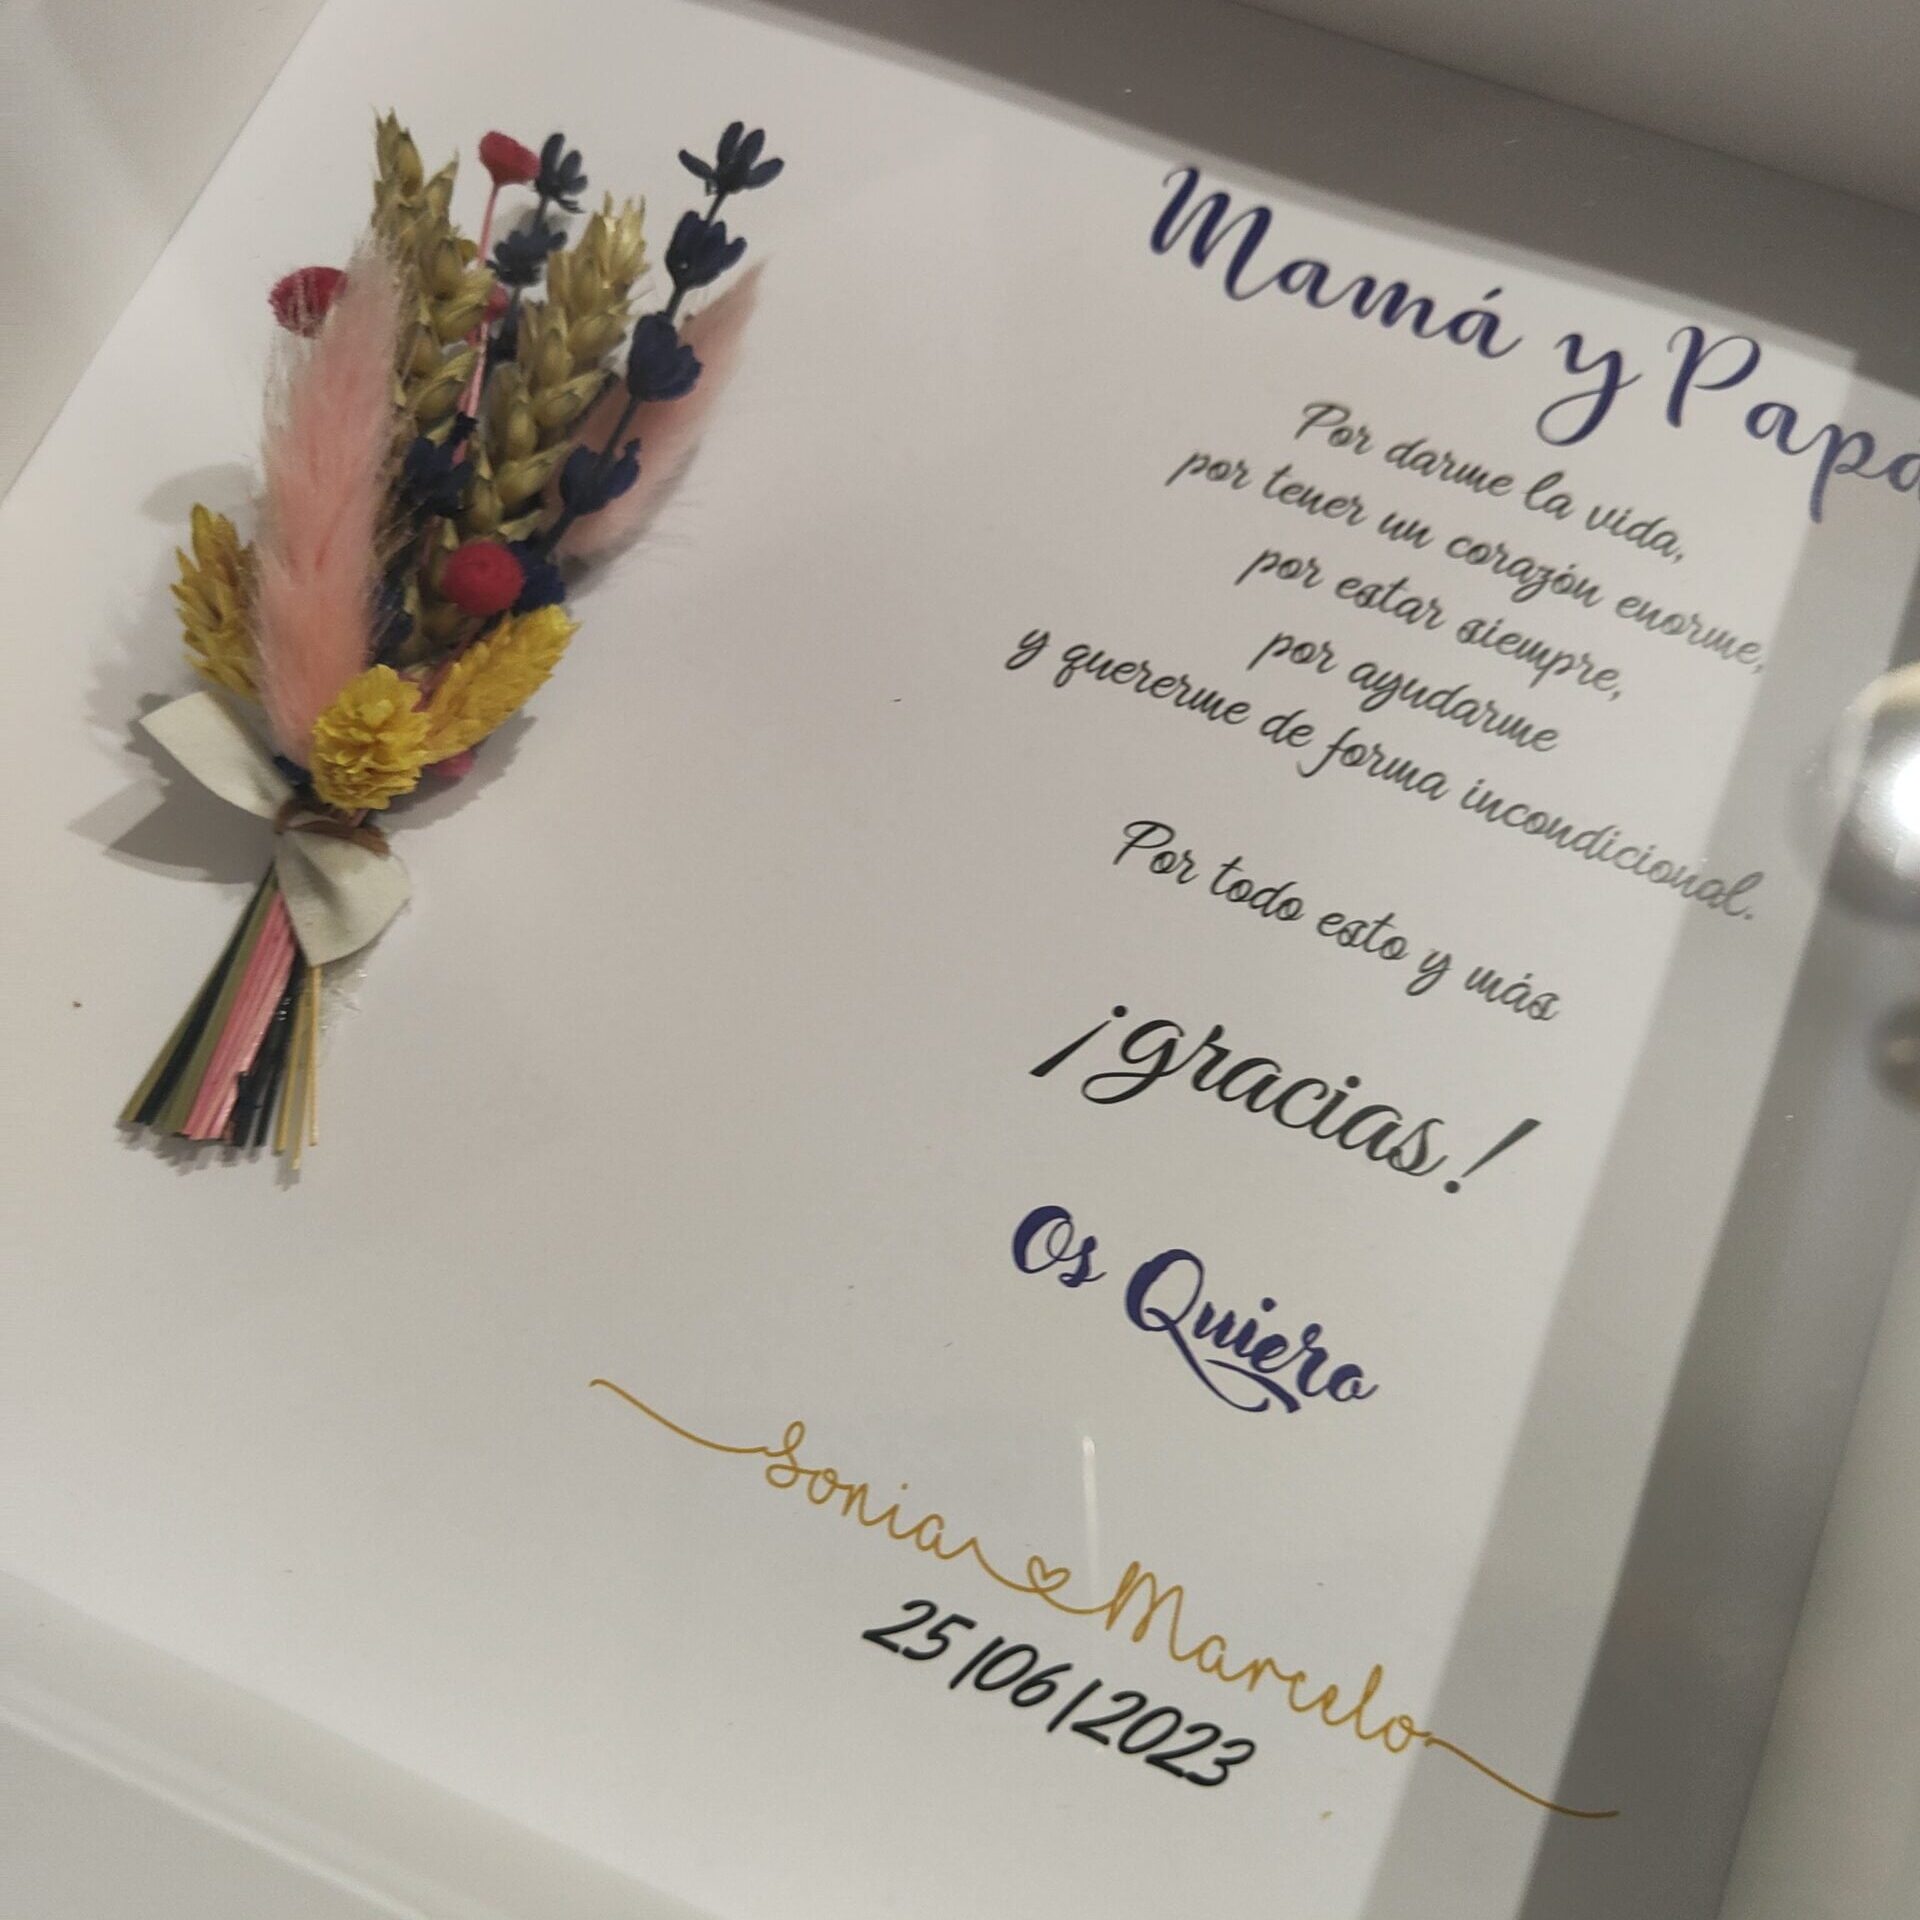 Mamá y Papá
Por darme la vida,
por tener un corazón enorme,
por estar siempre,
por ayudarme
y quererme de forma incondicional.
Por todo esto y más
¡gracias!
Os Quiero
Sonia Marcelo
25/06/2023